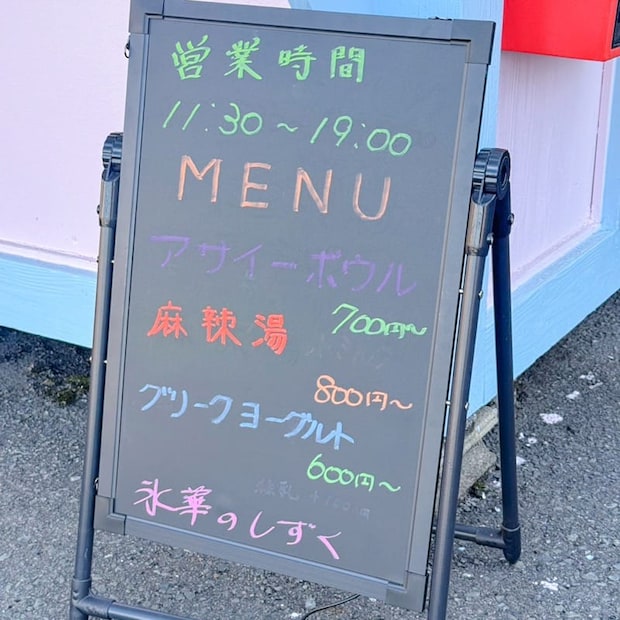 営業時間
11:30～19:00
MENU
アサイーボウル
700円～
麻辣湯
800円～
グリークヨーグルト
600円～
氷華のしずく